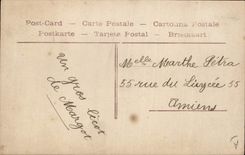 Post-Card — Carte Postale — Cartolina Postale
Postkarte — Tarjeta Postal — Briefkaart
Un gros
de Margot
Melle Marthe Pétra
55 rue du Lycée 55
Amiens